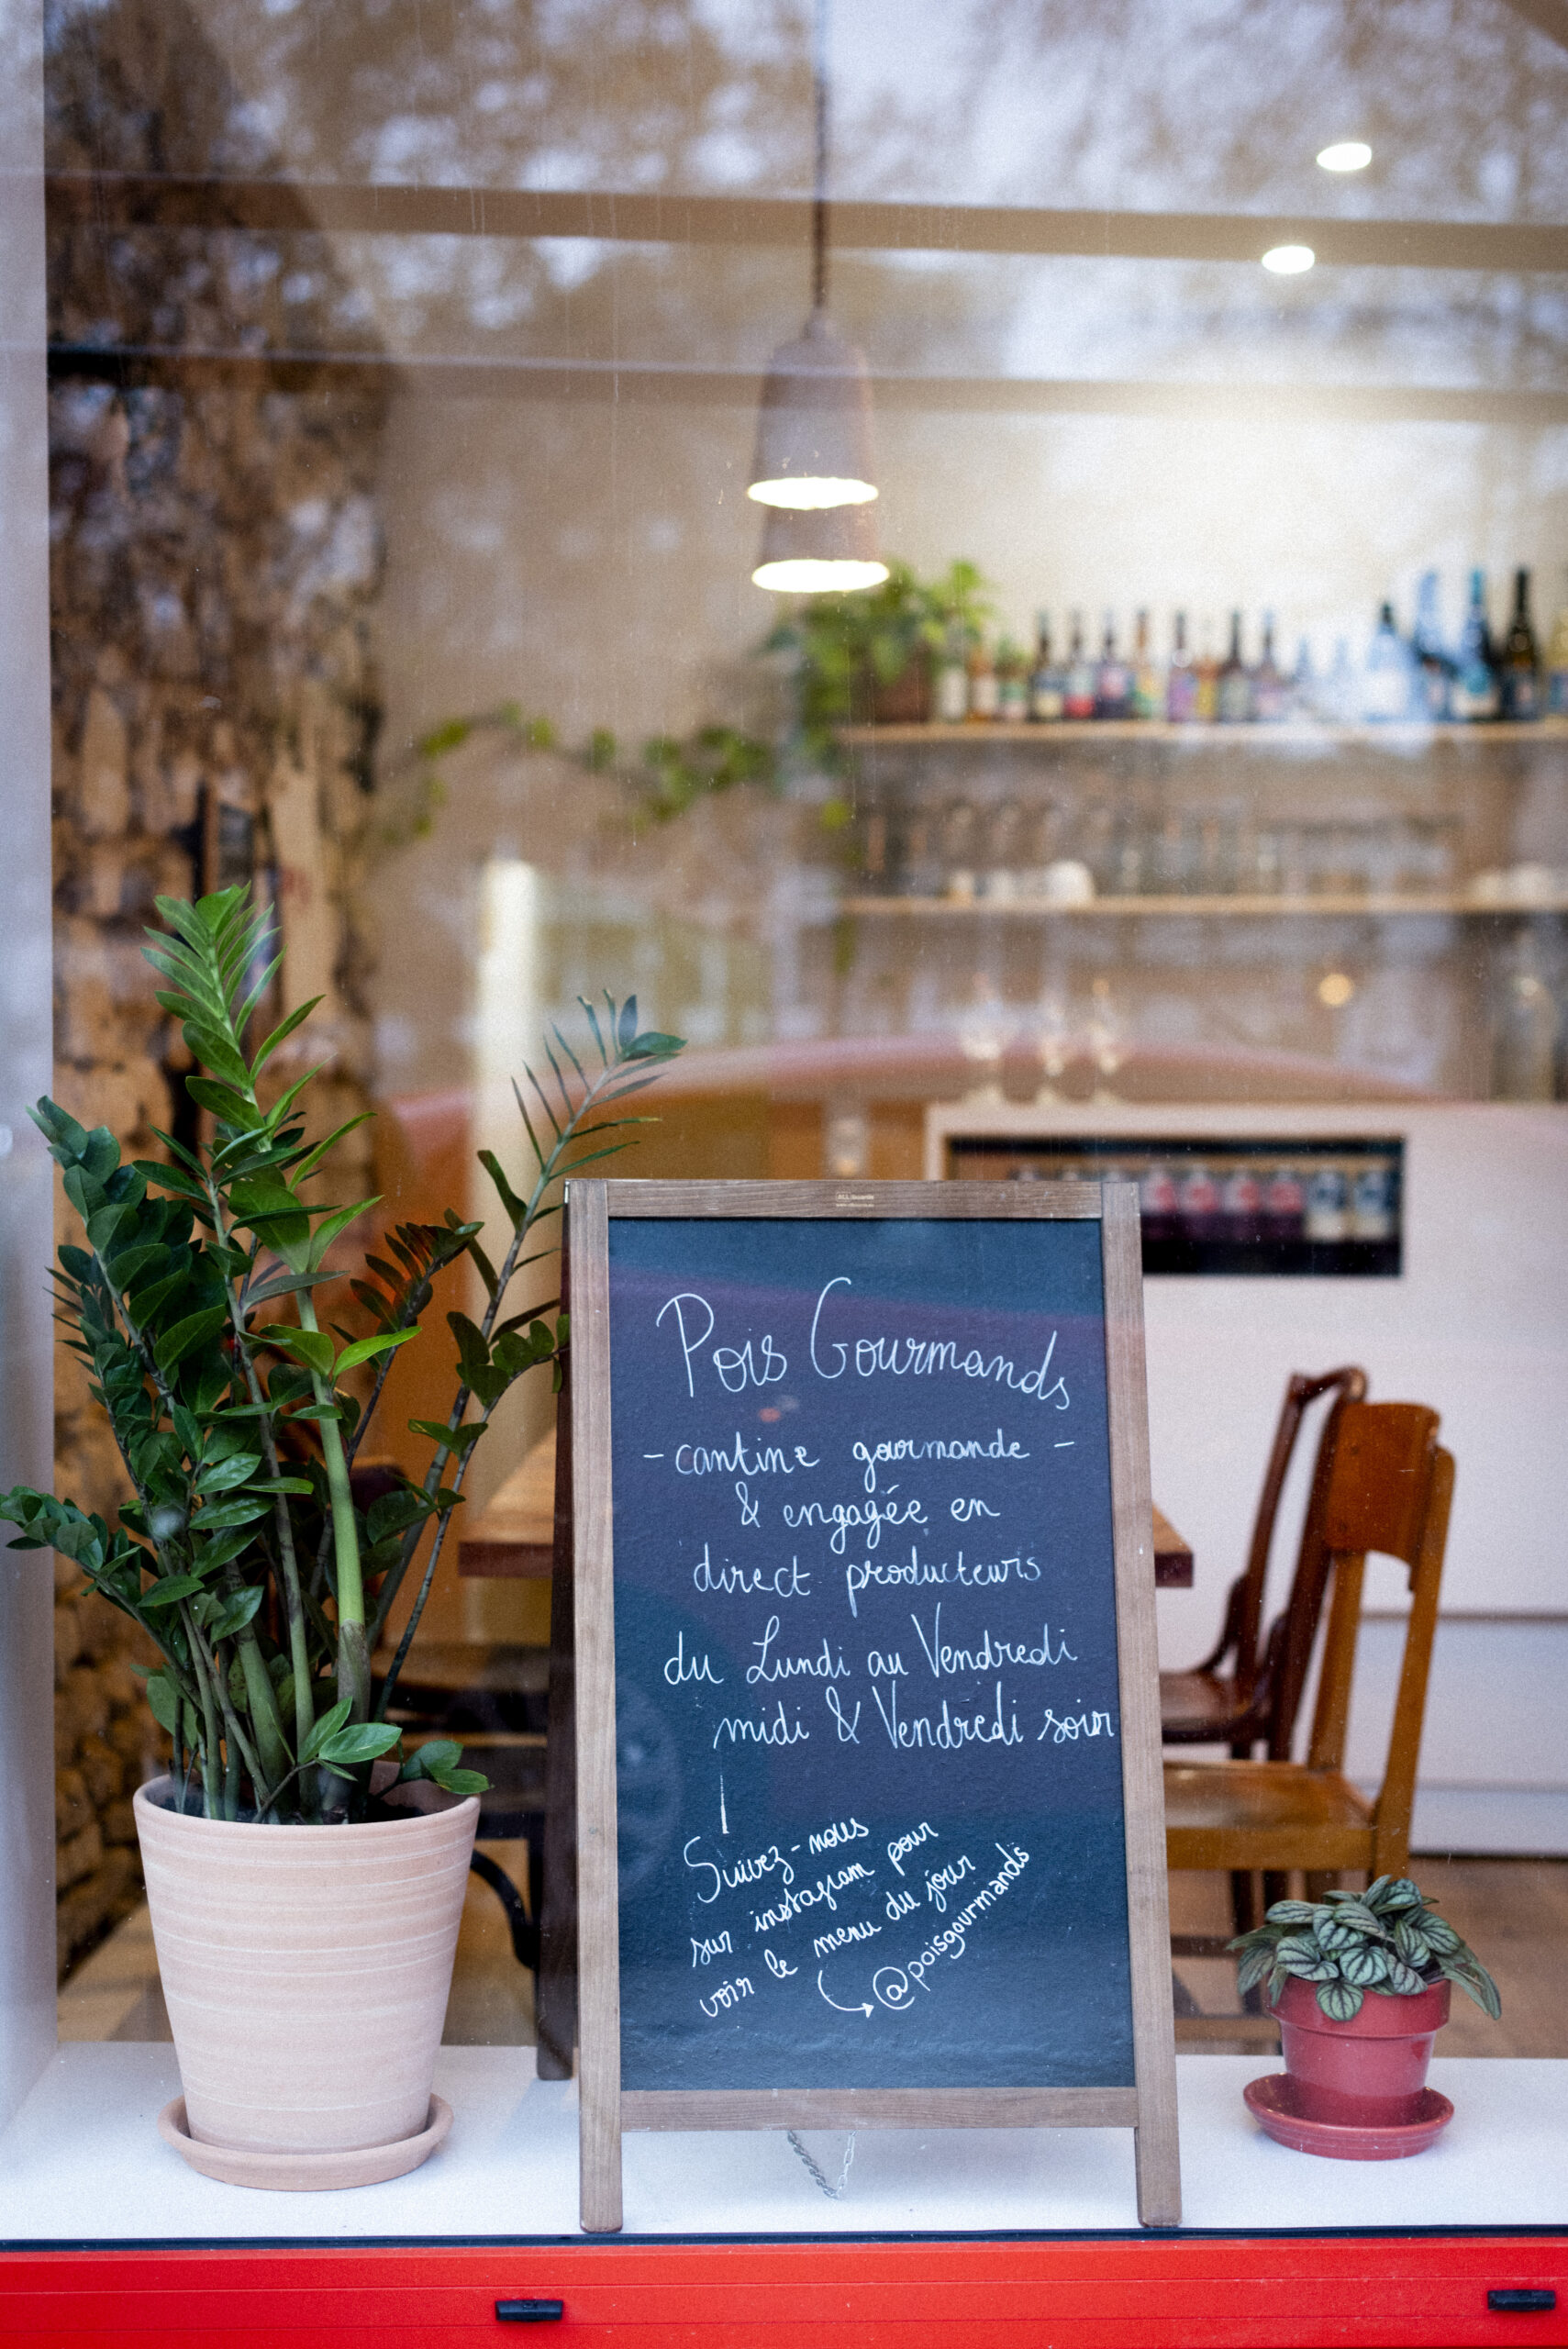 Pois Gourmands
- cantine gourmande -
& engagée en
direct producteurs
du Lundi au Vendredi
midi & Vendredi soir
Suivez-nous
sur instagram pour
voir le menu du jour
@poisgourmands